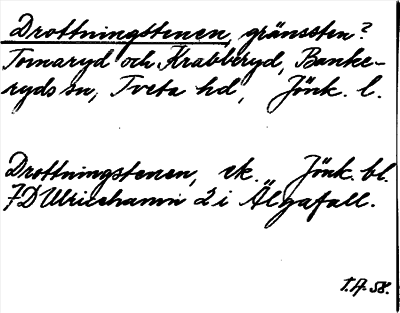 Drottningstenen, gränssten?
Tomaryd och Krabberyd, Banke-
ryds sn, Tveta hd, Jönk. l.
Drottningstenen, ek. Jönk. bl.
7D Ulricehamn 2 i Älgafall.
I.A. 58.